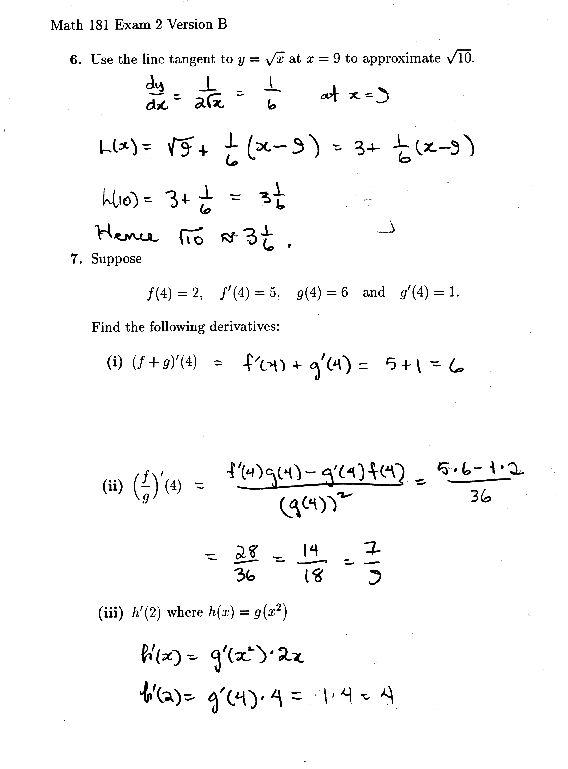 Math 181 Exam 2 Version B
6. Use the line tangent to y = √x at x = 9 to approximate √10.
dy/dx = 1/(2√x) = 1/6 at x = 9
L(x) = √9 + 1/6 (x-9) = 3 + 1/6 (x-9)
L(10) = 3 + 1/6 = 3 1/6
Hence √10 ≈ 3 1/6.
7. Suppose
f(4) = 2, f′(4) = 5, g(4) = 6 and g′(4) = 1.
Find the following derivatives:
(i) (f + g)′(4) = f′(4) + g′(4) = 5+1 = 6
(ii) (f/g)′(4) = (f′(4)g(4) - g′(4)f(4))/(g(4))² = (5·6-1·2)/36
= 28/36 = 14/18 = 7/9
(iii) h′(2) where h(x) = g(x²)
h′(x) = g′(x²)·2x
h′(2) = g′(4)·4 = 1·4 = 4